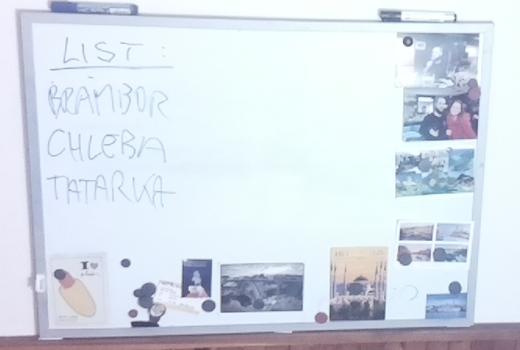 LIST :
BRAMBOR
CHLEBA
TATARKA
I